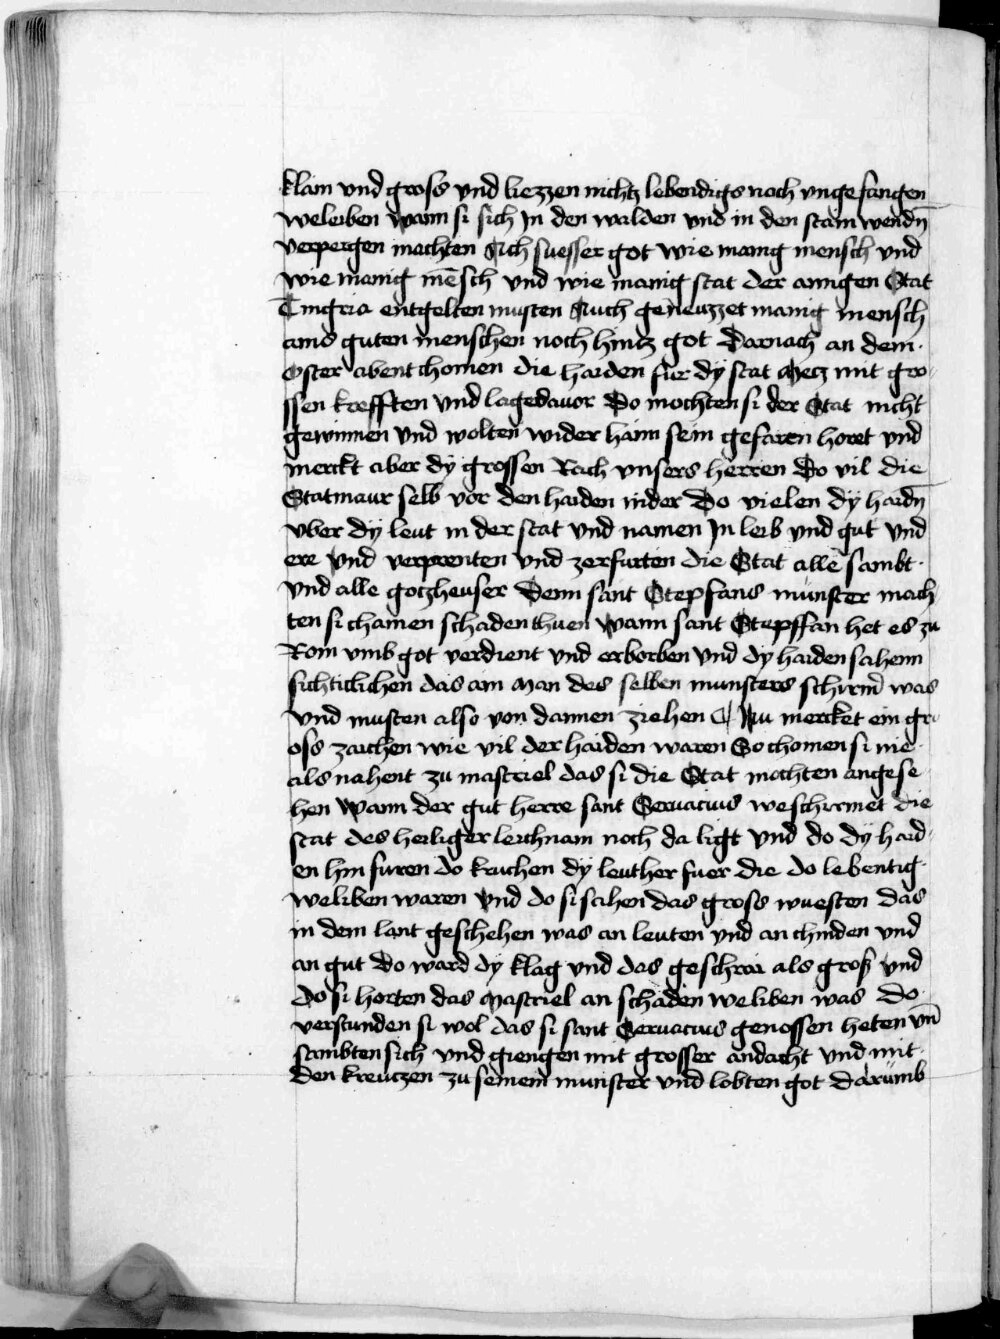 klain vnd gross vnd liezzen nichtz lebendigs noch vngefangen
weleiben wann si sich In den walden vnd in den stain wendn̄
verpergen mochten Ach suesser got wie manig mensch vnd
wie manig mēsch vnd wie manig stat der ainigen Stat
Tingria entgelten musten Auch geneuzzet manig mensch
ains guten menschen noch hintz got Darnach an dem
Oster abent chomen die haiden fur dy stat Metz mit gro
ssen krefften vnd lagedauor Do mochten si der Stat nicht
gewinnen vnd wolten wider haim sein gefaren horet vnd
merckt aber dy grossen Rach vnsers herren Do vil die
Statmaur selb vor den haiden nider Do vielen dy haidn̄
vber dy leut in der stat vnd namen In leib vnd gut vnd
ere vnd verprenten vnd zerfurten die Stat alle sambt
vnd alle gotzheuser Denn sant Stepfans munster moch
ten si chainen schaden thuen wann sant Stepffan het es zu
Rom vmb got verdient vnd erborben vnd dy haiden sahenn
sichticlichen das ain man des selben munsters schirm̄ was
vnd musten also von dannen ziehen Nu mercket ein gr
oss zaichen wie vil der haiden waren So chomen si nie
als nahent zu mastriel das si die Stat mochten angese
hen wann der gut herre sant Seruacius weschirmet die
stat des heiliger leichnam noch da ligt vnd do dy haid
en hin furen do kruchen dy leut her fuer die do lebentig
weliben waren vnd do si sahen das gross wuesten das
in dem lant geschehen was an leuten vnd an chinden vnd
an gut Do ward dy klag vnd das geschrai als groß vnd
do si horten das Mastriel an schaden weliben was Do
verstunden si wol das si sant Seruacius genossen heten vn̄
sambten sich vnd giengen mit grosser andacht vnd mit
den kreutzen zu seinem munster vnd lobten got darumb